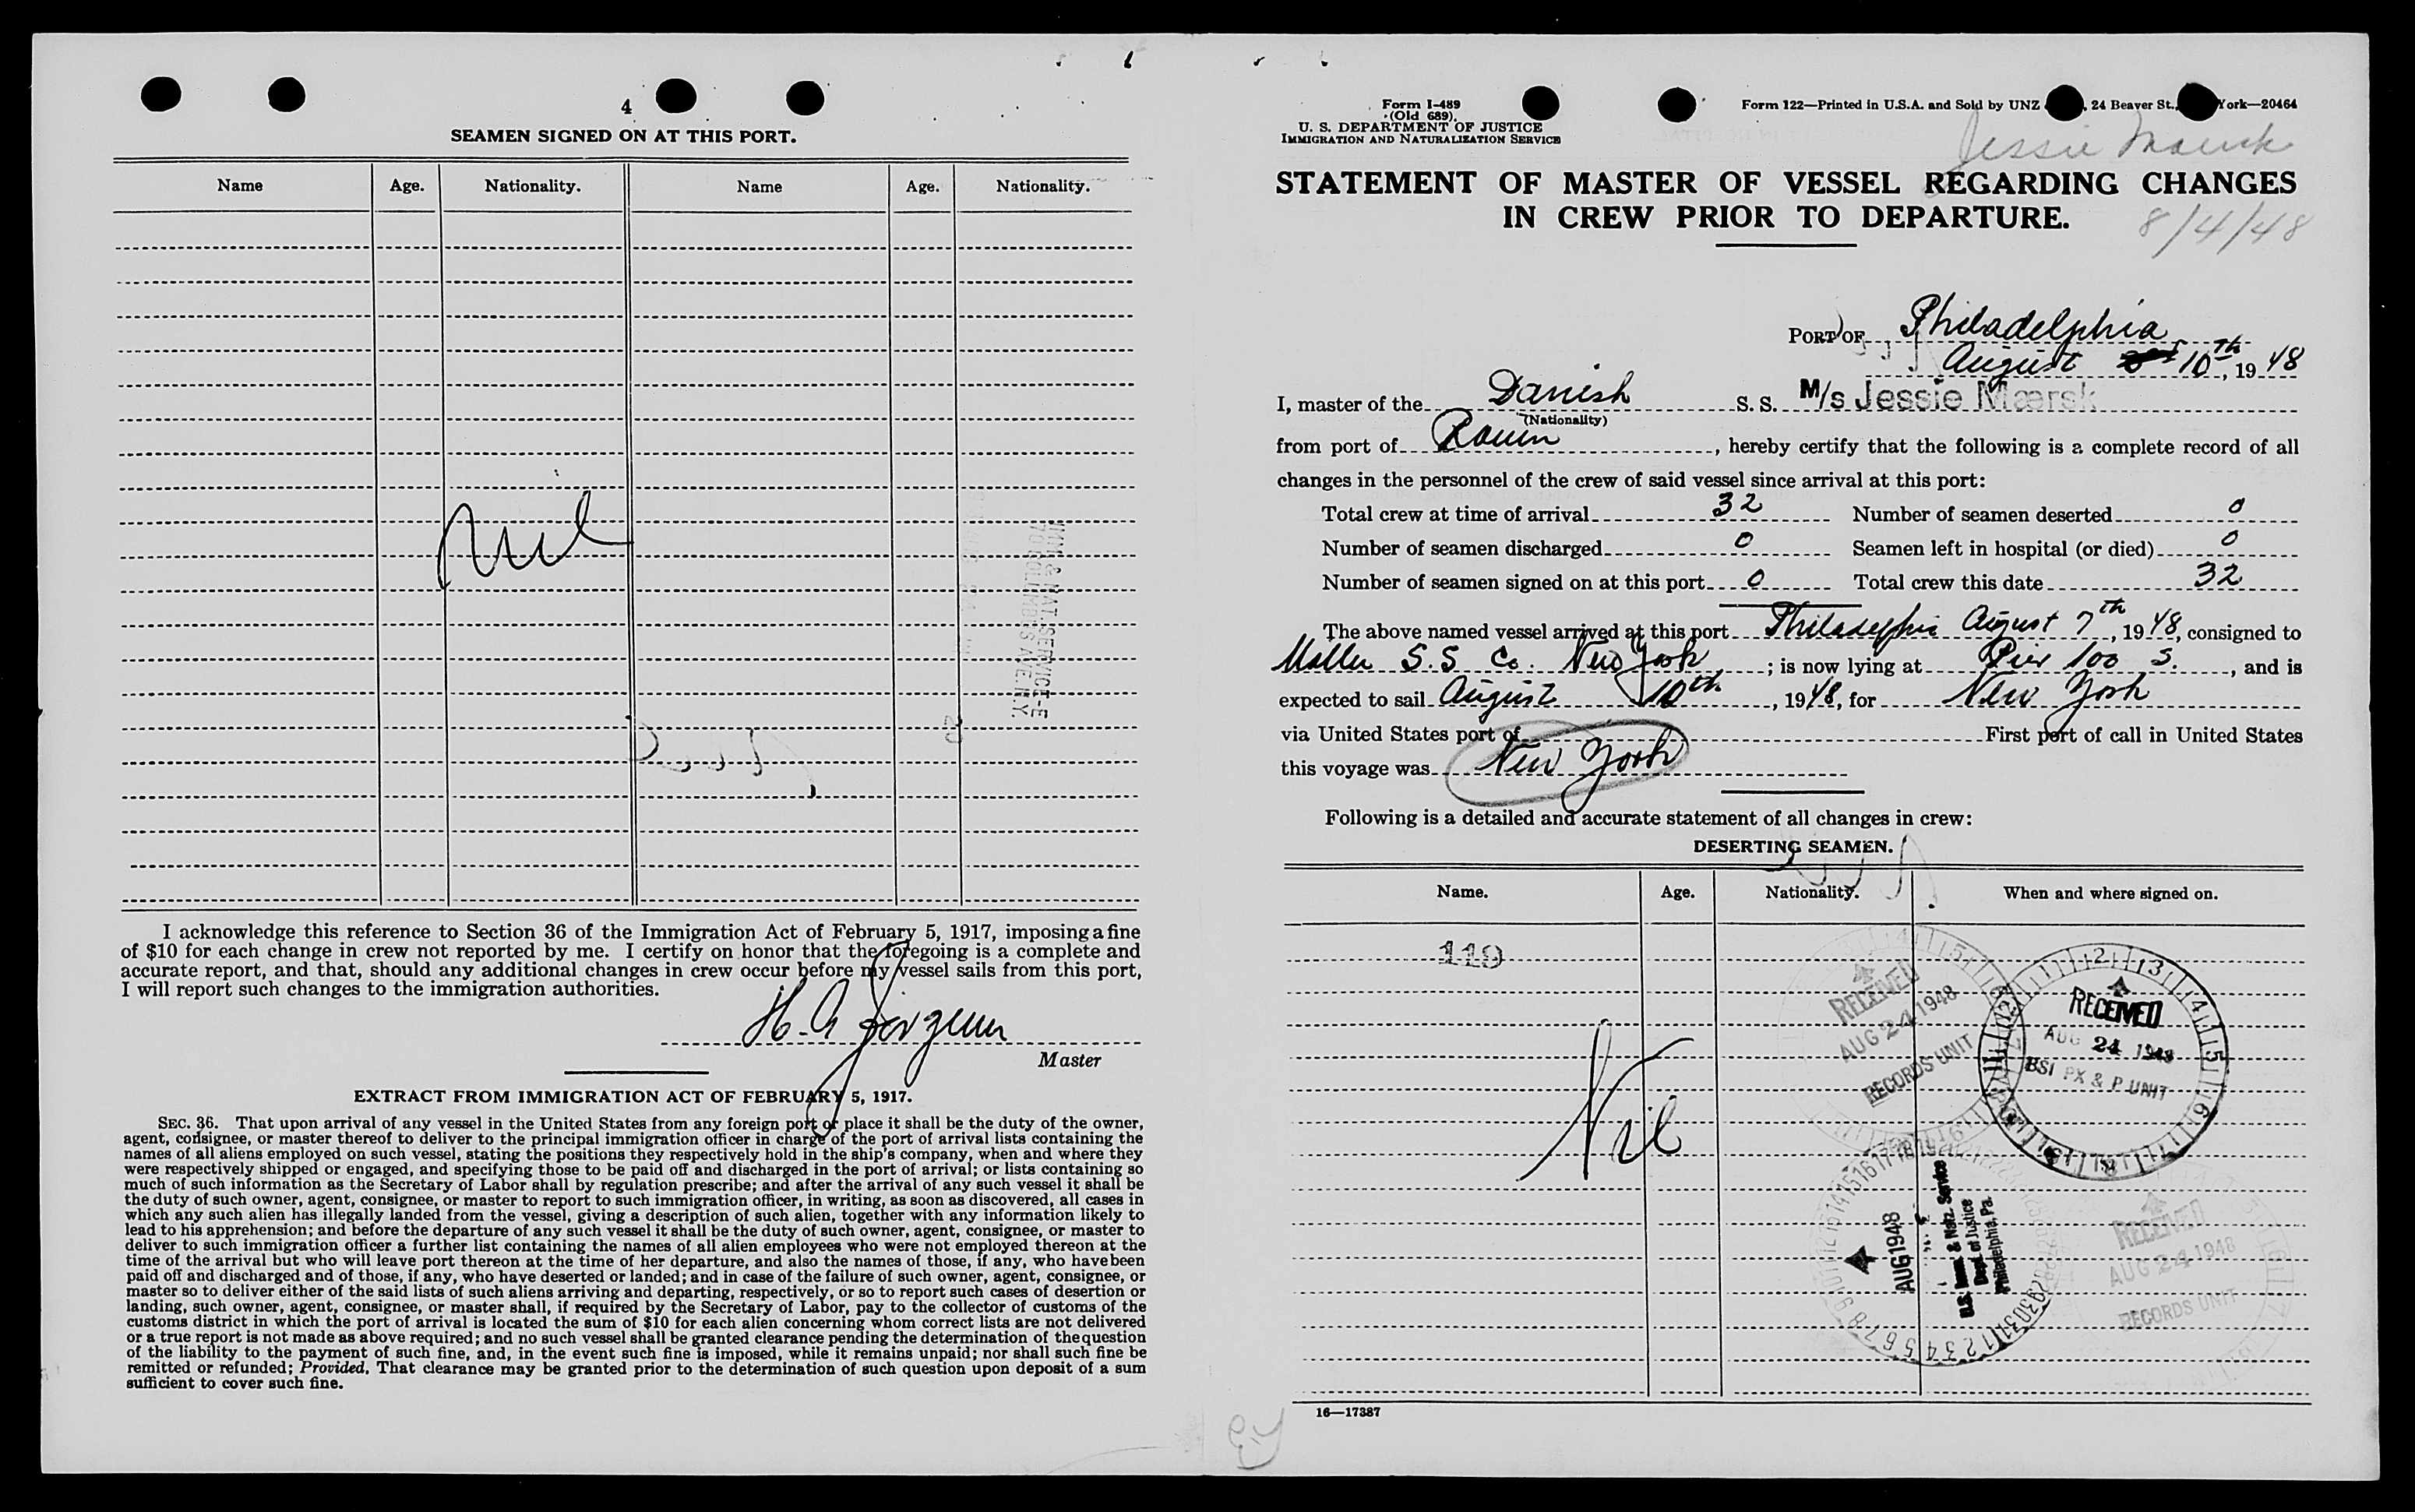 4
SEAMEN SIGNED ON AT THIS PORT.
Name Age. Nationality. Name Age. Nationality.
nil
IMM. & NAT. SERVICE-E
70 COLUMBUS AVE. N.Y.
I acknowledge this reference to Section 36 of the Immigration Act of February 5, 1917, imposing a fine
of $10 for each change in crew not reported by me. I certify on honor that the foregoing is a complete and
accurate report, and that, should any additional changes in crew occur before my vessel sails from this port,
I will report such changes to the immigration authorities.
Master
EXTRACT FROM IMMIGRATION ACT OF FEBRUARY 5, 1917.
SEC. 36. That upon arrival of any vessel in the United States from any foreign port or place it shall be the duty of the owner,
agent, consignee, or master thereof to deliver to the principal immigration officer in charge of the port of arrival lists containing the
names of all aliens employed on such vessel, stating the positions they respectively hold in the ship's company, when and where they
were respectively shipped or engaged, and specifying those to be paid off and discharged in the port of arrival; or lists containing so
much of such information as the Secretary of Labor shall by regulation prescribe; and after the arrival of any such vessel it shall be
the duty of such owner, agent, consignee, or master to report to such immigration officer, in writing, as soon as discovered, all cases in
which any such alien has illegally landed from the vessel, giving a description of such alien, together with any information likely to
lead to his apprehension; and before the departure of any such vessel it shall be the duty of such owner, agent, consignee, or master to
deliver to such immigration officer a further list containing the names of all alien employees who were not employed thereon at the
time of the arrival but who will leave port thereon at the time of her departure, and also the names of those, if any, who have been
paid off and discharged and of those, if any, who have deserted or landed; and in case of the failure of such owner, agent, consignee, or
master so to deliver either of the said lists of such aliens arriving and departing, respectively, or so to report such cases of desertion or
landing, such owner, agent, consignee, or master shall, if required by the Secretary of Labor, pay to the collector of customs of the
customs district in which the port of arrival is located the sum of $10 for each alien concerning whom correct lists are not delivered
or a true report is not made as above required; and no such vessel shall be granted clearance pending the determination of the question
of the liability to the payment of such fine, and, in the event such fine is imposed, while it remains unpaid; nor shall such fine be
remitted or refunded; Provided, That clearance may be granted prior to the determination of such question upon deposit of a sum
sufficient to cover such fine.
Form I-489
(Old 689)
U. S. DEPARTMENT OF JUSTICE
IMMIGRATION AND NATURALIZATION SERVICE
Form 122—Printed in U.S.A. and Sold by UNZ , 24 Beaver St., York—20464
Jessie Maersk
STATEMENT OF MASTER OF VESSEL REGARDING CHANGES
IN CREW PRIOR TO DEPARTURE.
8/4/48
PORT OF Philadelphia
August 10th, 1948
I, master of the Danish S. S. M/s Jessie Mærsk
(Nationality)
from port of Rouen, hereby certify that the following is a complete record of all
changes in the personnel of the crew of said vessel since arrival at this port:
Total crew at time of arrival 32 Number of seamen deserted 0
Number of seamen discharged 0 Seamen left in hospital (or died) 0
Number of seamen signed on at this port 0 Total crew this date 32
The above named vessel arrived at this port Philadelphia August 7th, 1948, consigned to
Moller S.S Co. New York; is now lying at Pier 100 S., and is
expected to sail August 10th, 1948, for New York
via United States port of First port of call in United States
this voyage was New York
Following is a detailed and accurate statement of all changes in crew:
DESERTING SEAMEN.
Name. Age. Nationality. When and where signed on.
119
Nil
RECEIVED
AUG 24 1948
RECORDS UNIT
RECEIVED
AUG 24 1948
BSI PX & P UNIT
AUG 1948
U.S. Imm. & Natz. Service
Dept. of Justice
Philadelphia, Pa.
RECEIVED
AUG 24 1948
RECORDS UNIT
16—17387